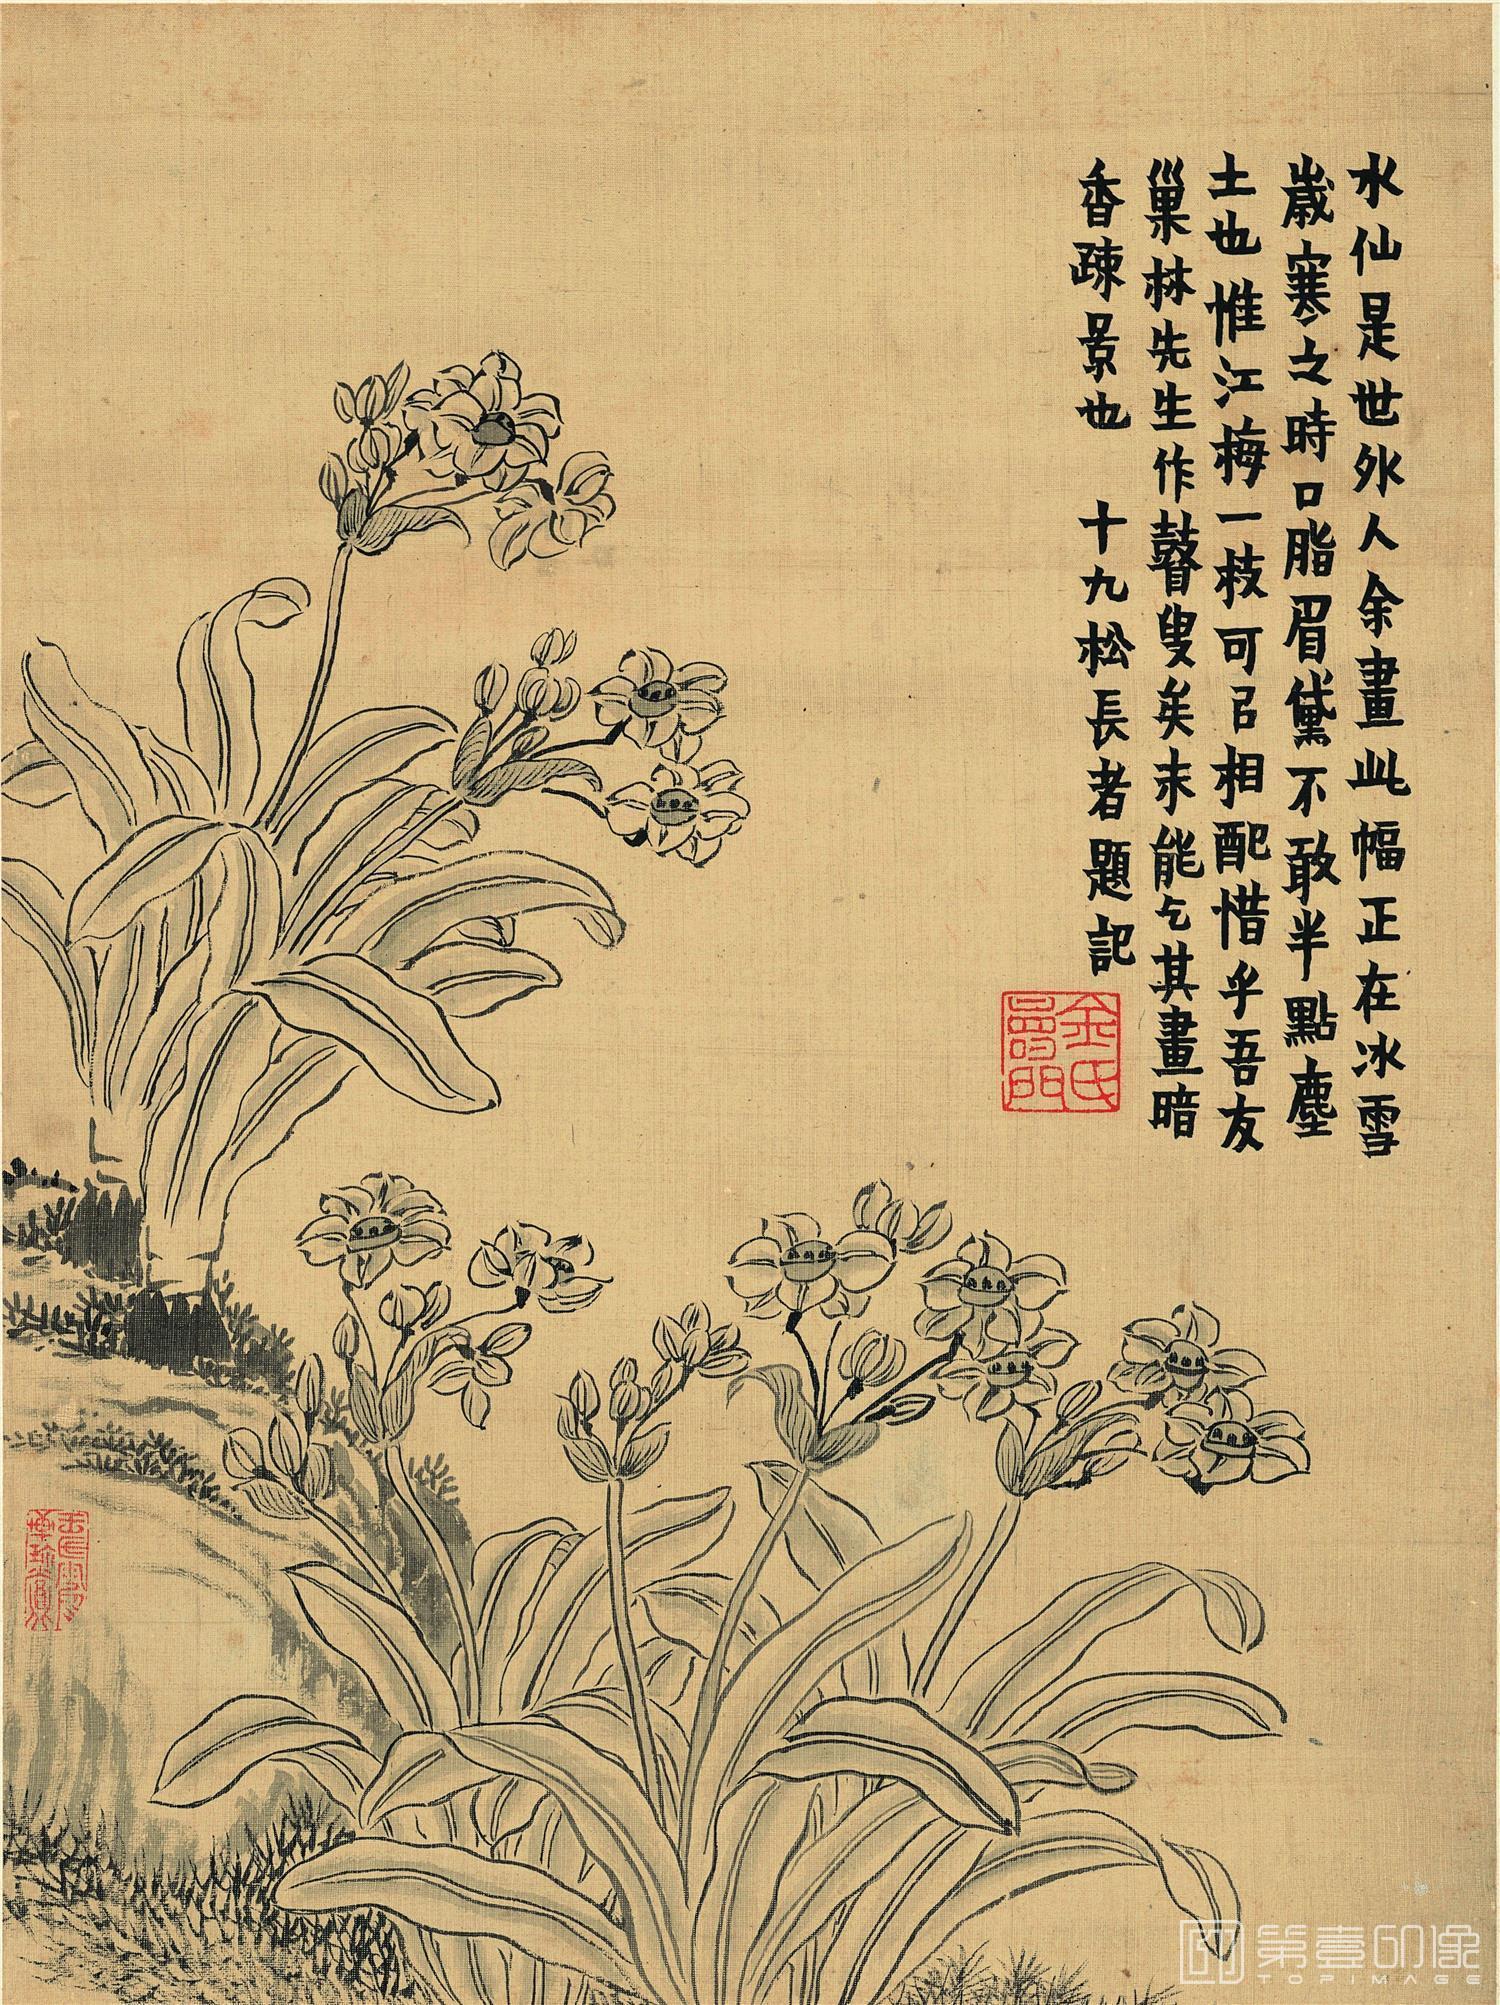 水仙是世外人余畫此幅正在冰雪
歲寒之時口脂眉黛不敢半點塵
土也惟江梅一枝可㠯相配惜乎吾友
巢林先生作瞽叟矣未能乞其畫暗
香疎景也 十九松長者題記
金氏
第壹印像
TOPIMAGE